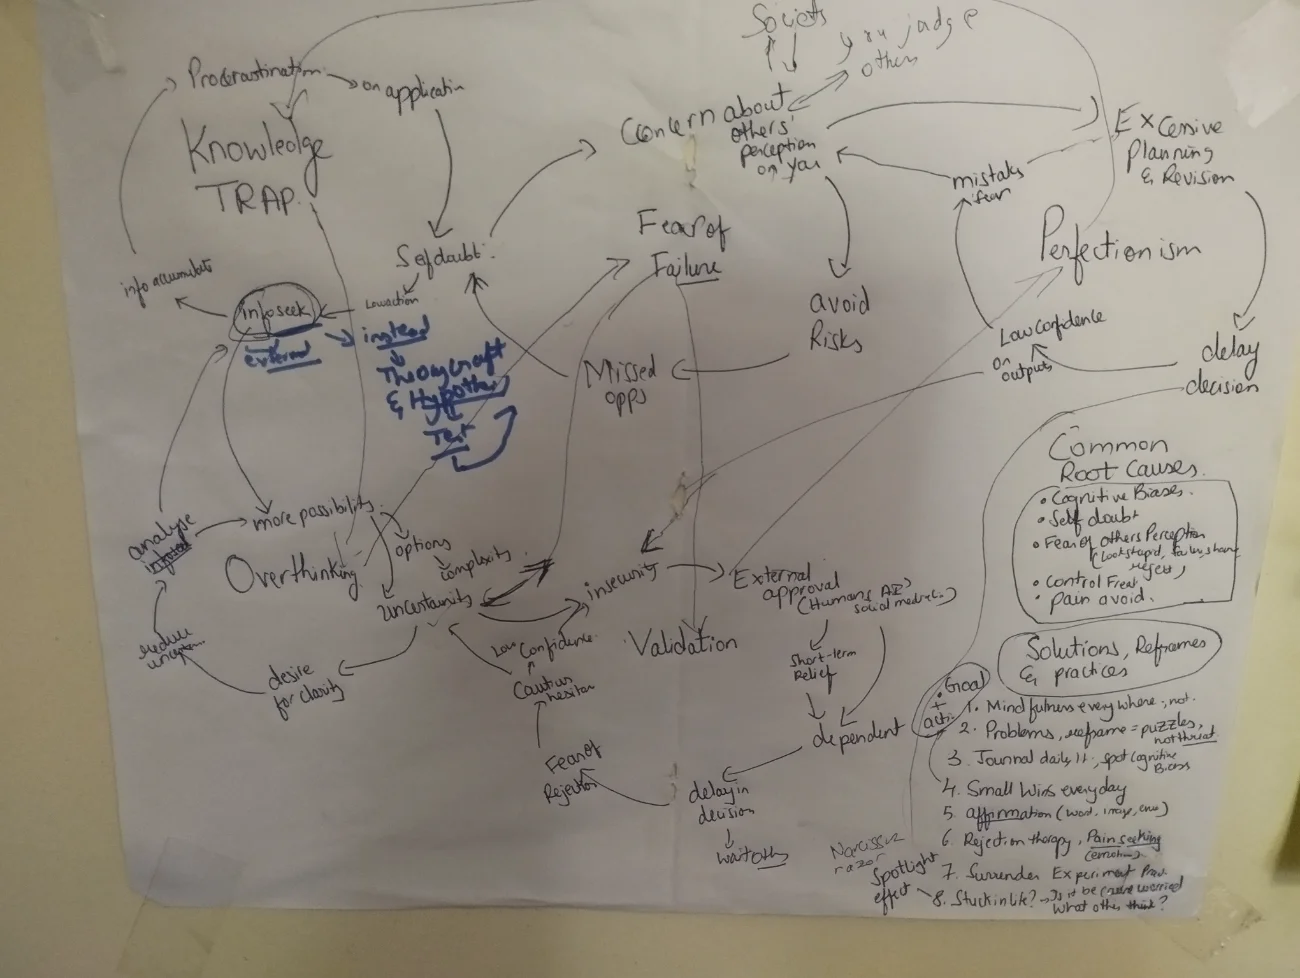 Procrastination
on application
Knowledge
TRAP.
info accumulate
infoseek
external
Self doubt
Low action
instead
Theorycraft
& Hypothes
Test
Society
you judge
others
Concern about
others'
perception
on you
Excessive
Planning
& Revision
mistake
fear
Fear of
Failure
Perfectionism
avoid
Risks
Missed
opps
Low confidence
on
outputs
delay
decision
more possibility
options
complexity
Overthinking
uncertainty
analyse
infoseek
reduce
desire
for clarity
insecurity
Low Confidence
Cautious
hesitan
Fear of
Rejection
Validation
External
approval
(Humans, AI,
social media)
Short-term
Relief
dependent
delay in
decision
wait others
Common
Root Causes.
• Cognitive Biases.
• Self doubt
• Fear of others Perception
(look stupid, failure, shame,
reject)
• Control Freak
• pain avoid.
Solutions, Reframes
& practices
• Goal
+
action
1. Mindfulness everywhere
2. Problems, reframe = puzzles,
not threat.
3. Journal daily, spot cognitive
Biases
4. Small wins everyday
5. affirmation (word, image, emo)
6. Rejection therapy, Pain seeking
(emotion)
7. Surrender Experiment
8. Stuck in life? → Is it because worried
what others think?
Narcissus
razor
Spotlight
effect